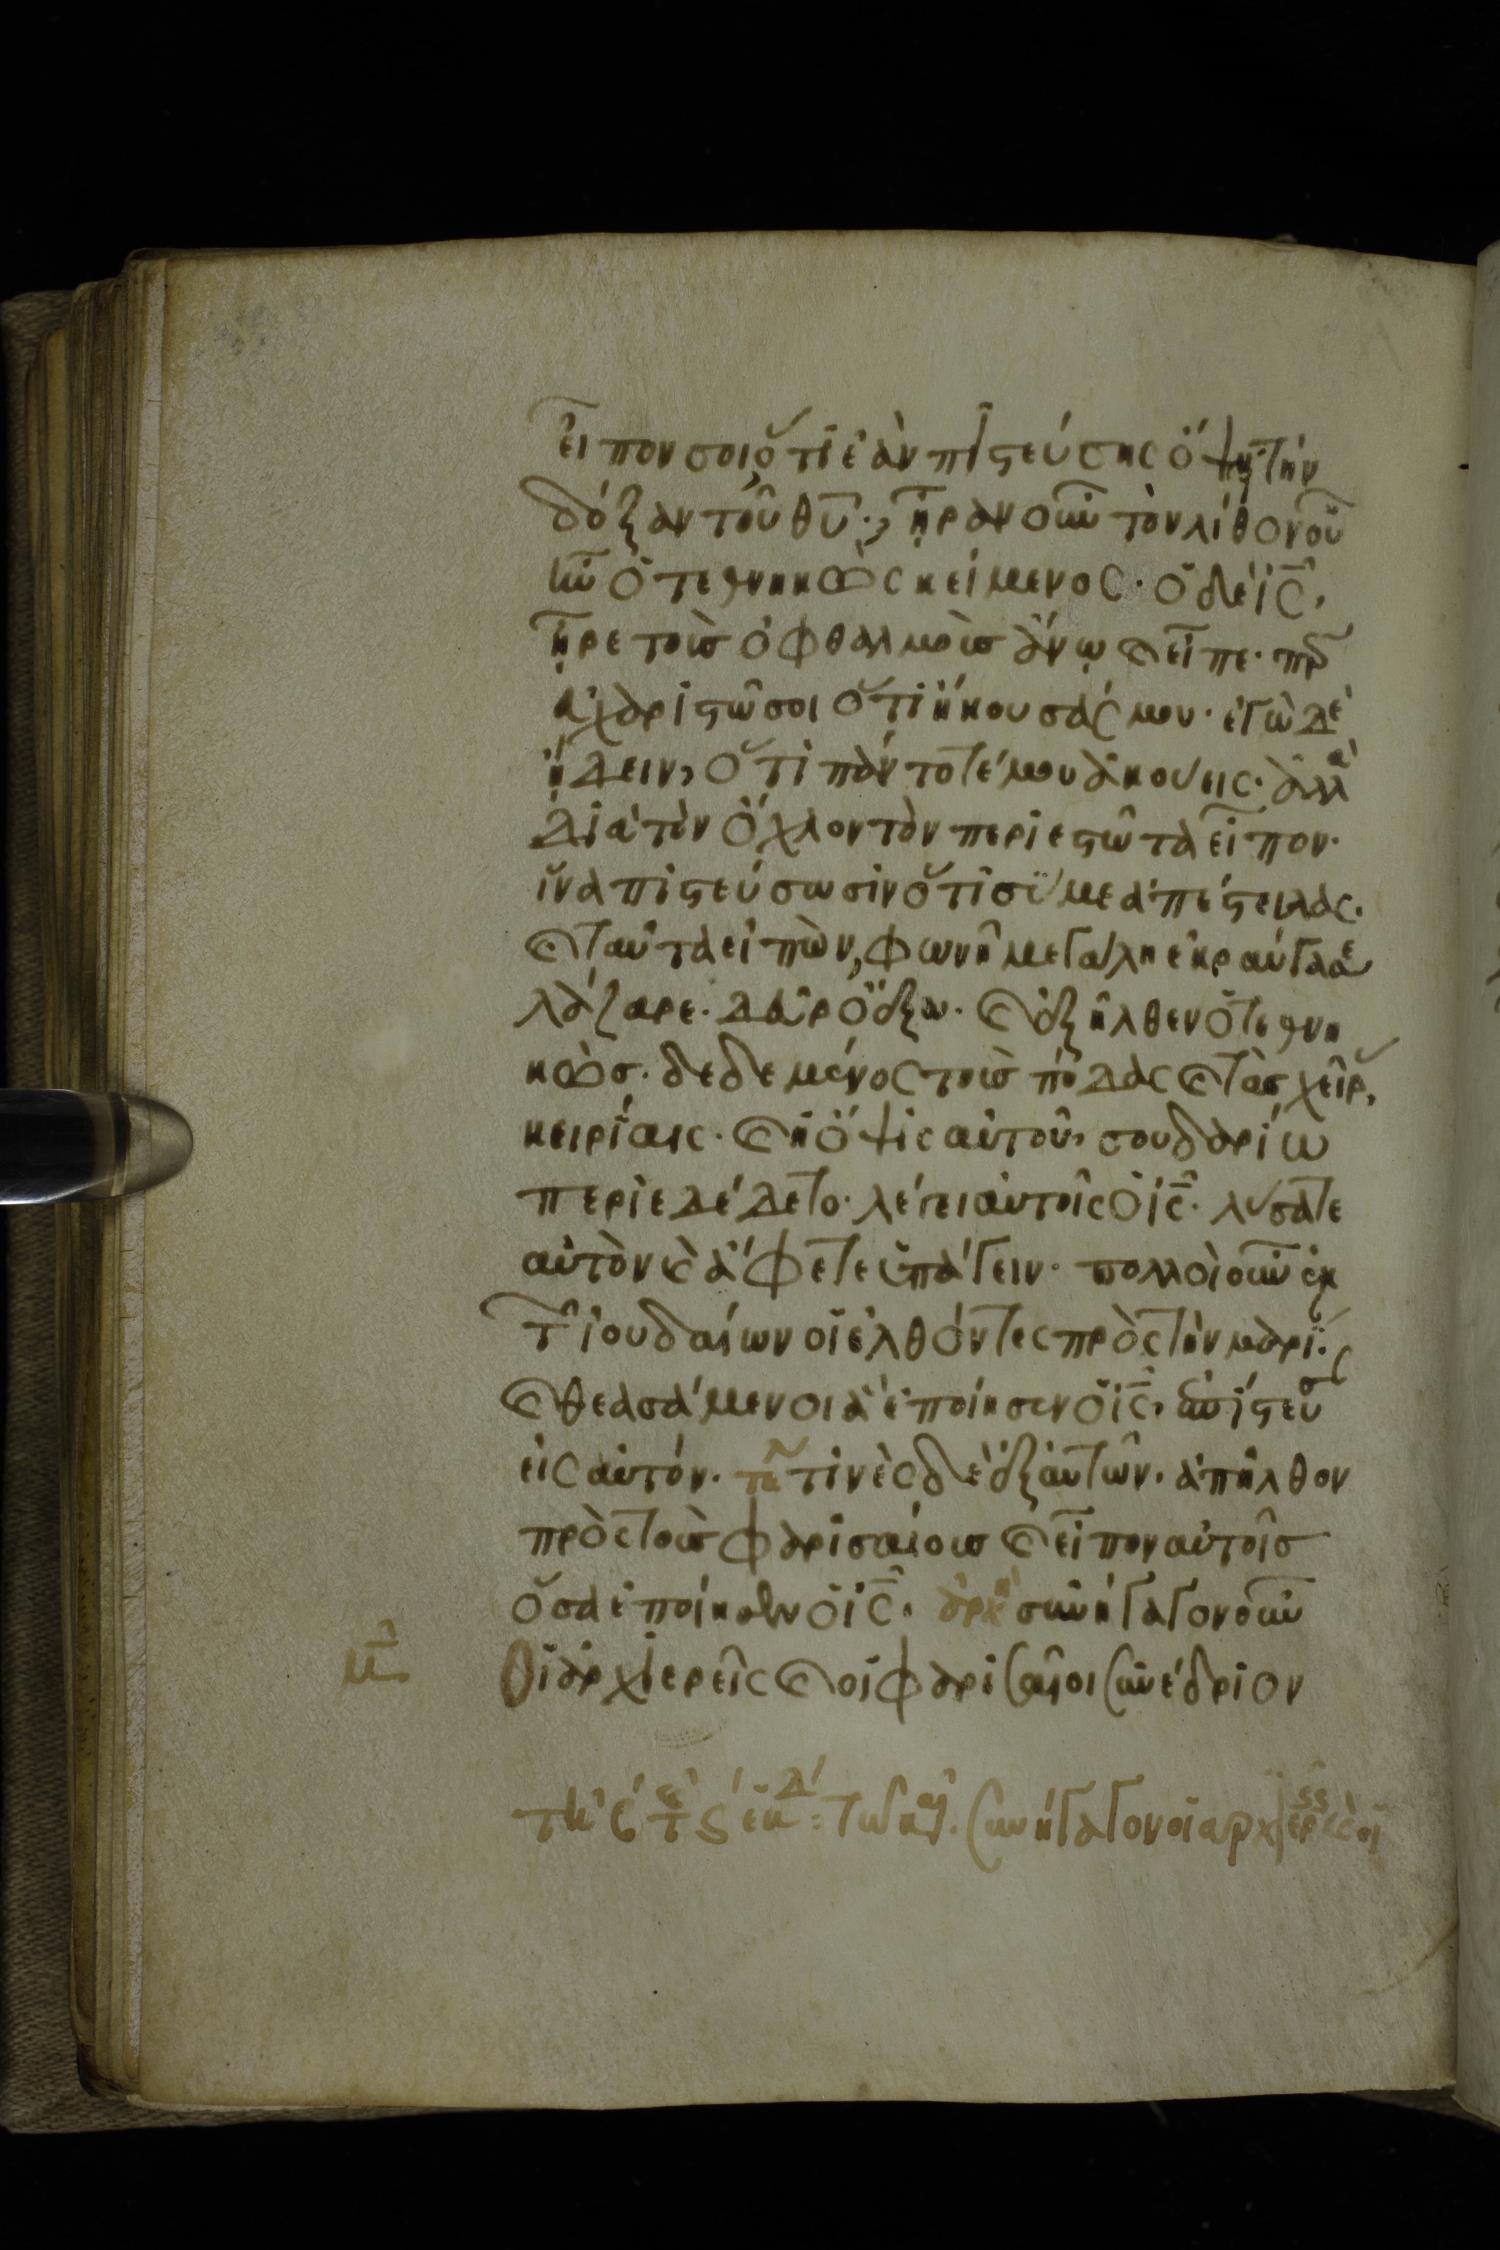 εἶπον σοι ὅτι ἐὰν πιστεύσης ὄψη τὴν
δόξαν τοῦ θυ̅· ἦραν οὖν τὸν λίθον οὗ
ἦν ὁ τεθνηκὼς κείμενος· ὁ δὲ ις̅,
ἦρε τοὺς ὀφθαλμοὺς ἄνω κ εἶπε· περ
εὐχαριστῶ σοι ὅτι ἤκουσάς μου· ἐγὼ δὲ
ἤδειν, ὅτι πάντοτέ μου ἀκούεις· ἀλλὰ
διὰ τὸν ὄχλον τὸν περιεστῶτα εἶπον·
ἵνα πιστεύσωσιν ὅτι σύ με ἀπέστειλας·
κ ταῦτα εἰπὼν, φωνῆ μεγάλη ἐκραύγασε
λάζαρε· δεῦρο ἔξω· κ ἐξῆλθεν ὁ τεθνη
κὼς· δεδεμένος τοὺς πόδας κ τὰς χεῖρ,
κειρίαις· κ ἡ ὄψις αὐτοῦ, σουδαρίω
περιεδέδετο· λέγει αὐτοῖς ὁ ις̅· λύσατε
αὐτὸν κ ἄφετε ὑπάγειν· πολλοὶ οὖν ἐκ
τ ἰουδαίων οἱ ἐλθόντες πρὸς τὴν μαρί·
κ θεασάμενοι ἃ ἐποίησεν ὁ ις̅, ἐπίστευσ
εἰς αὐτόν· τε τινὲς δὲ ἐξ αὐτῶν· ἀπῆλθον
πρὸς τοὺς φαρισαίους κ εἶπον αὐτοῖς
ὅσα ἐποίησεν ὁ ις̅· ἀρχ συνήγαγον οὖν
οἱ ἀρχιερεῖς κ οἱ φαρισαῖοι συνέδριον
συνήγαγον οἱ ἀρχιερ κ οἱ